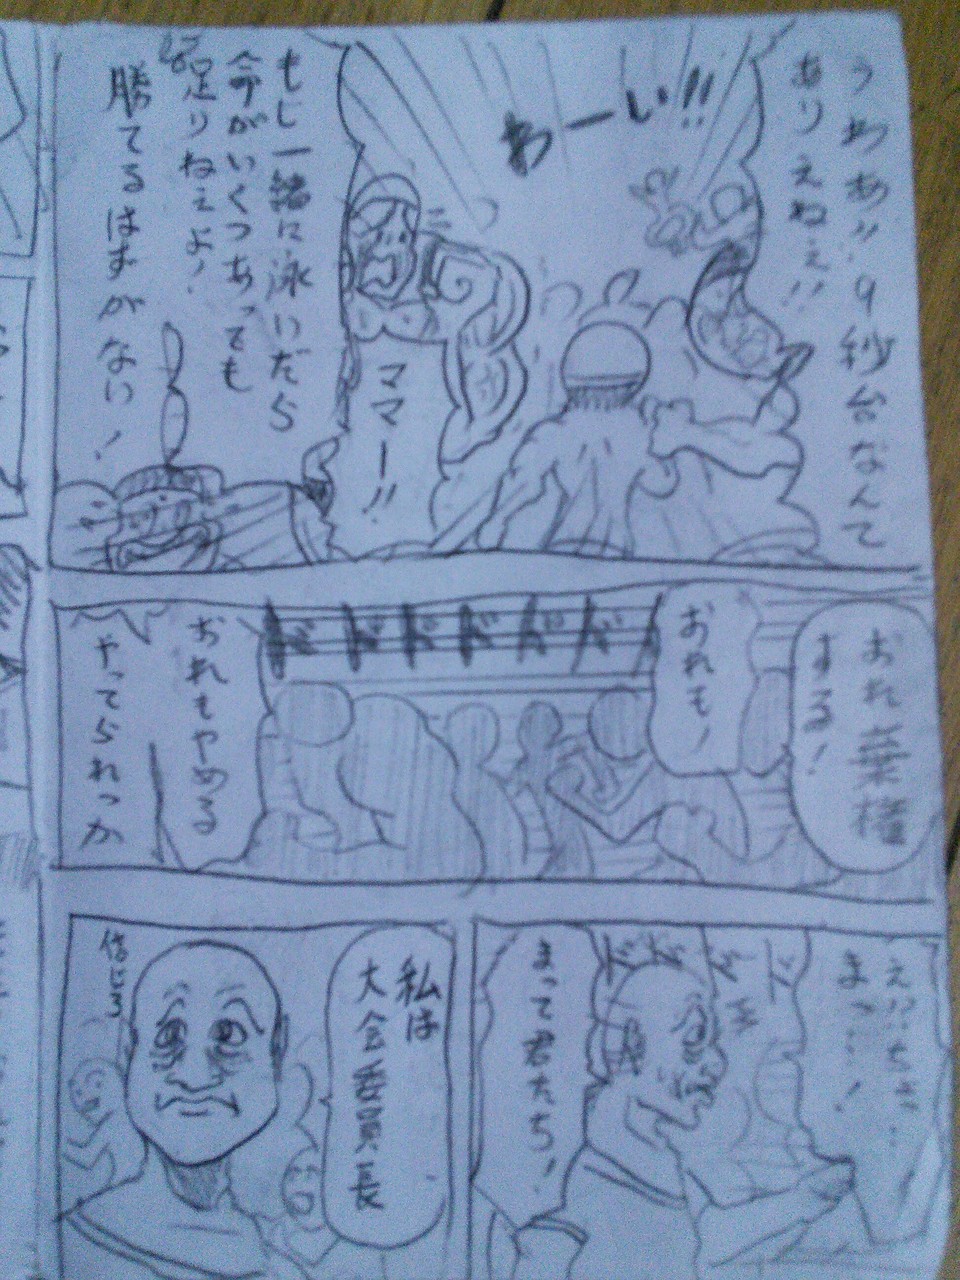 うわあ!!9秒台なんて
ありえねぇ!!
わーい!!
ママー!!
もし一緒に泳いだら
命がいくつあっても
足りねぇよ!
勝てるはずがない!
おれ棄権
する!
おれも!
ドドドドドド
おれもやめる
やってられっか
え!!ちょ…
まっ…!
ドドドド
まって君たち!
私は
大会委員長